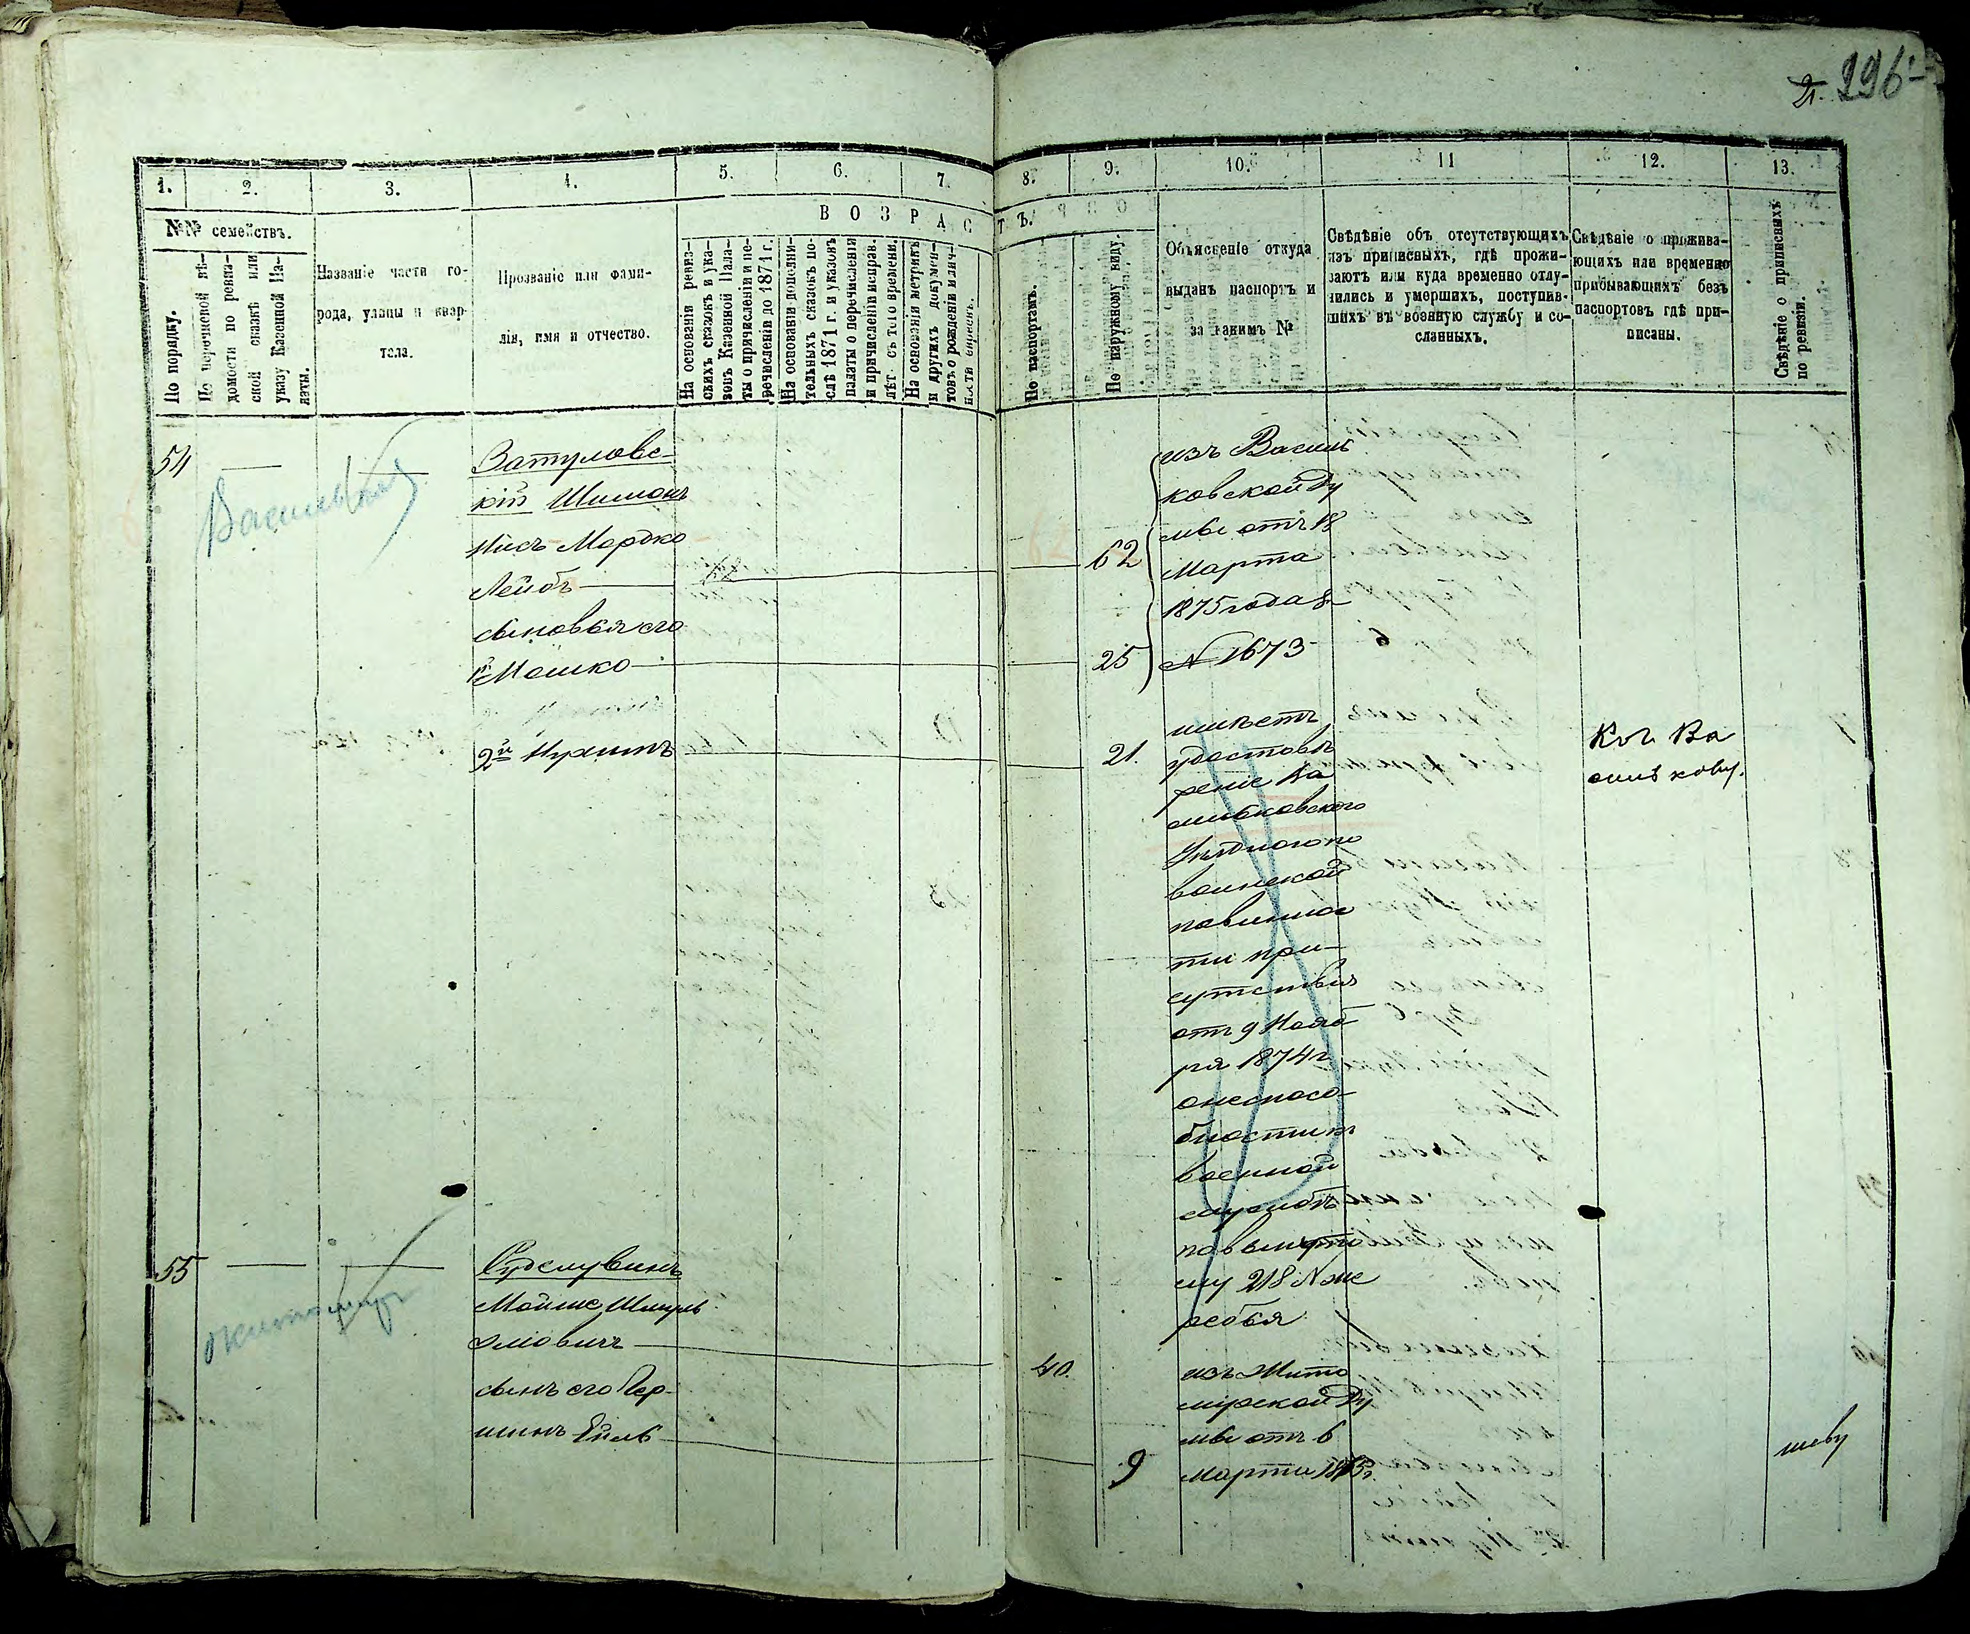 21. 296
1. 2. 3. 4. 5. 6. 7. 8. 9. 10. 11 12. 13.
№№ семействъ.
По порядку.
По перечневой вѣ-
домости по ревиз-
ской сказкѣ или
указу Казенной Па-
латы.
Названіе части го-
рода, улицы и квар-
тала.
Прозваніе или фами-
лія, имя и отчество.
ВОЗРАСТЪ.
На основаніи ревиз-
скихъ сказокъ и ука-
зовъ Казенной Пала-
ты о причисленіи и пе-
речисленіи до 1871 г.
На основаніи дополни-
тельныхъ сказокъ по-
слѣ 1871 г. и указовъ
палаты о перечисленіи
и причисленіи исправ.
лѣт съ того времени.
На основаніи метрикъ
и другихъ докумен-
товъ о рожденіи
По паспортамъ.
По наружному виду.
Объясненіе откуда
выданъ паспортъ и
за какимъ №
Свѣдѣніе объ отсутствующихъ
изъ приписныхъ, гдѣ прожи-
ваютъ или куда временно отлу-
чились и умершихъ, поступив-
шихъ въ военную службу и со-
сланныхъ.
Свѣдѣніе о прожива-
ющихъ или временно
прибывающихъ безъ
паспортовъ гдѣ при-
писаны.
Свѣдѣніе о приписныхъ
по ревизіи.
54
Затуловс-
кій Шимонъ
Нисъ-Мордко
Лейбъ
сыновья его
1й Мошко
2й Нухимъ
62
25
21.
изъ Василь
ковской Ду
мы отъ 18
Марта
1875 года за
№ 1673
имѣетъ
удостовѣ
реніе Ва
сильковского
Уѣзднаго по
воинской
повиннос
ти при-
сутствія
отъ 9 Нояб
ря 1874 г
о неспосо-
бности къ
военной
службѣ
по вынуто
му 218 № же
ребья
Къ г. Ва
силькову.
55
Мойше Шмуль
сынъ его Гер-
шинъ Ейль
40.
9
изъ Жито
мірской Ду
мы отъ 6
Марта
Васильков
Житомир